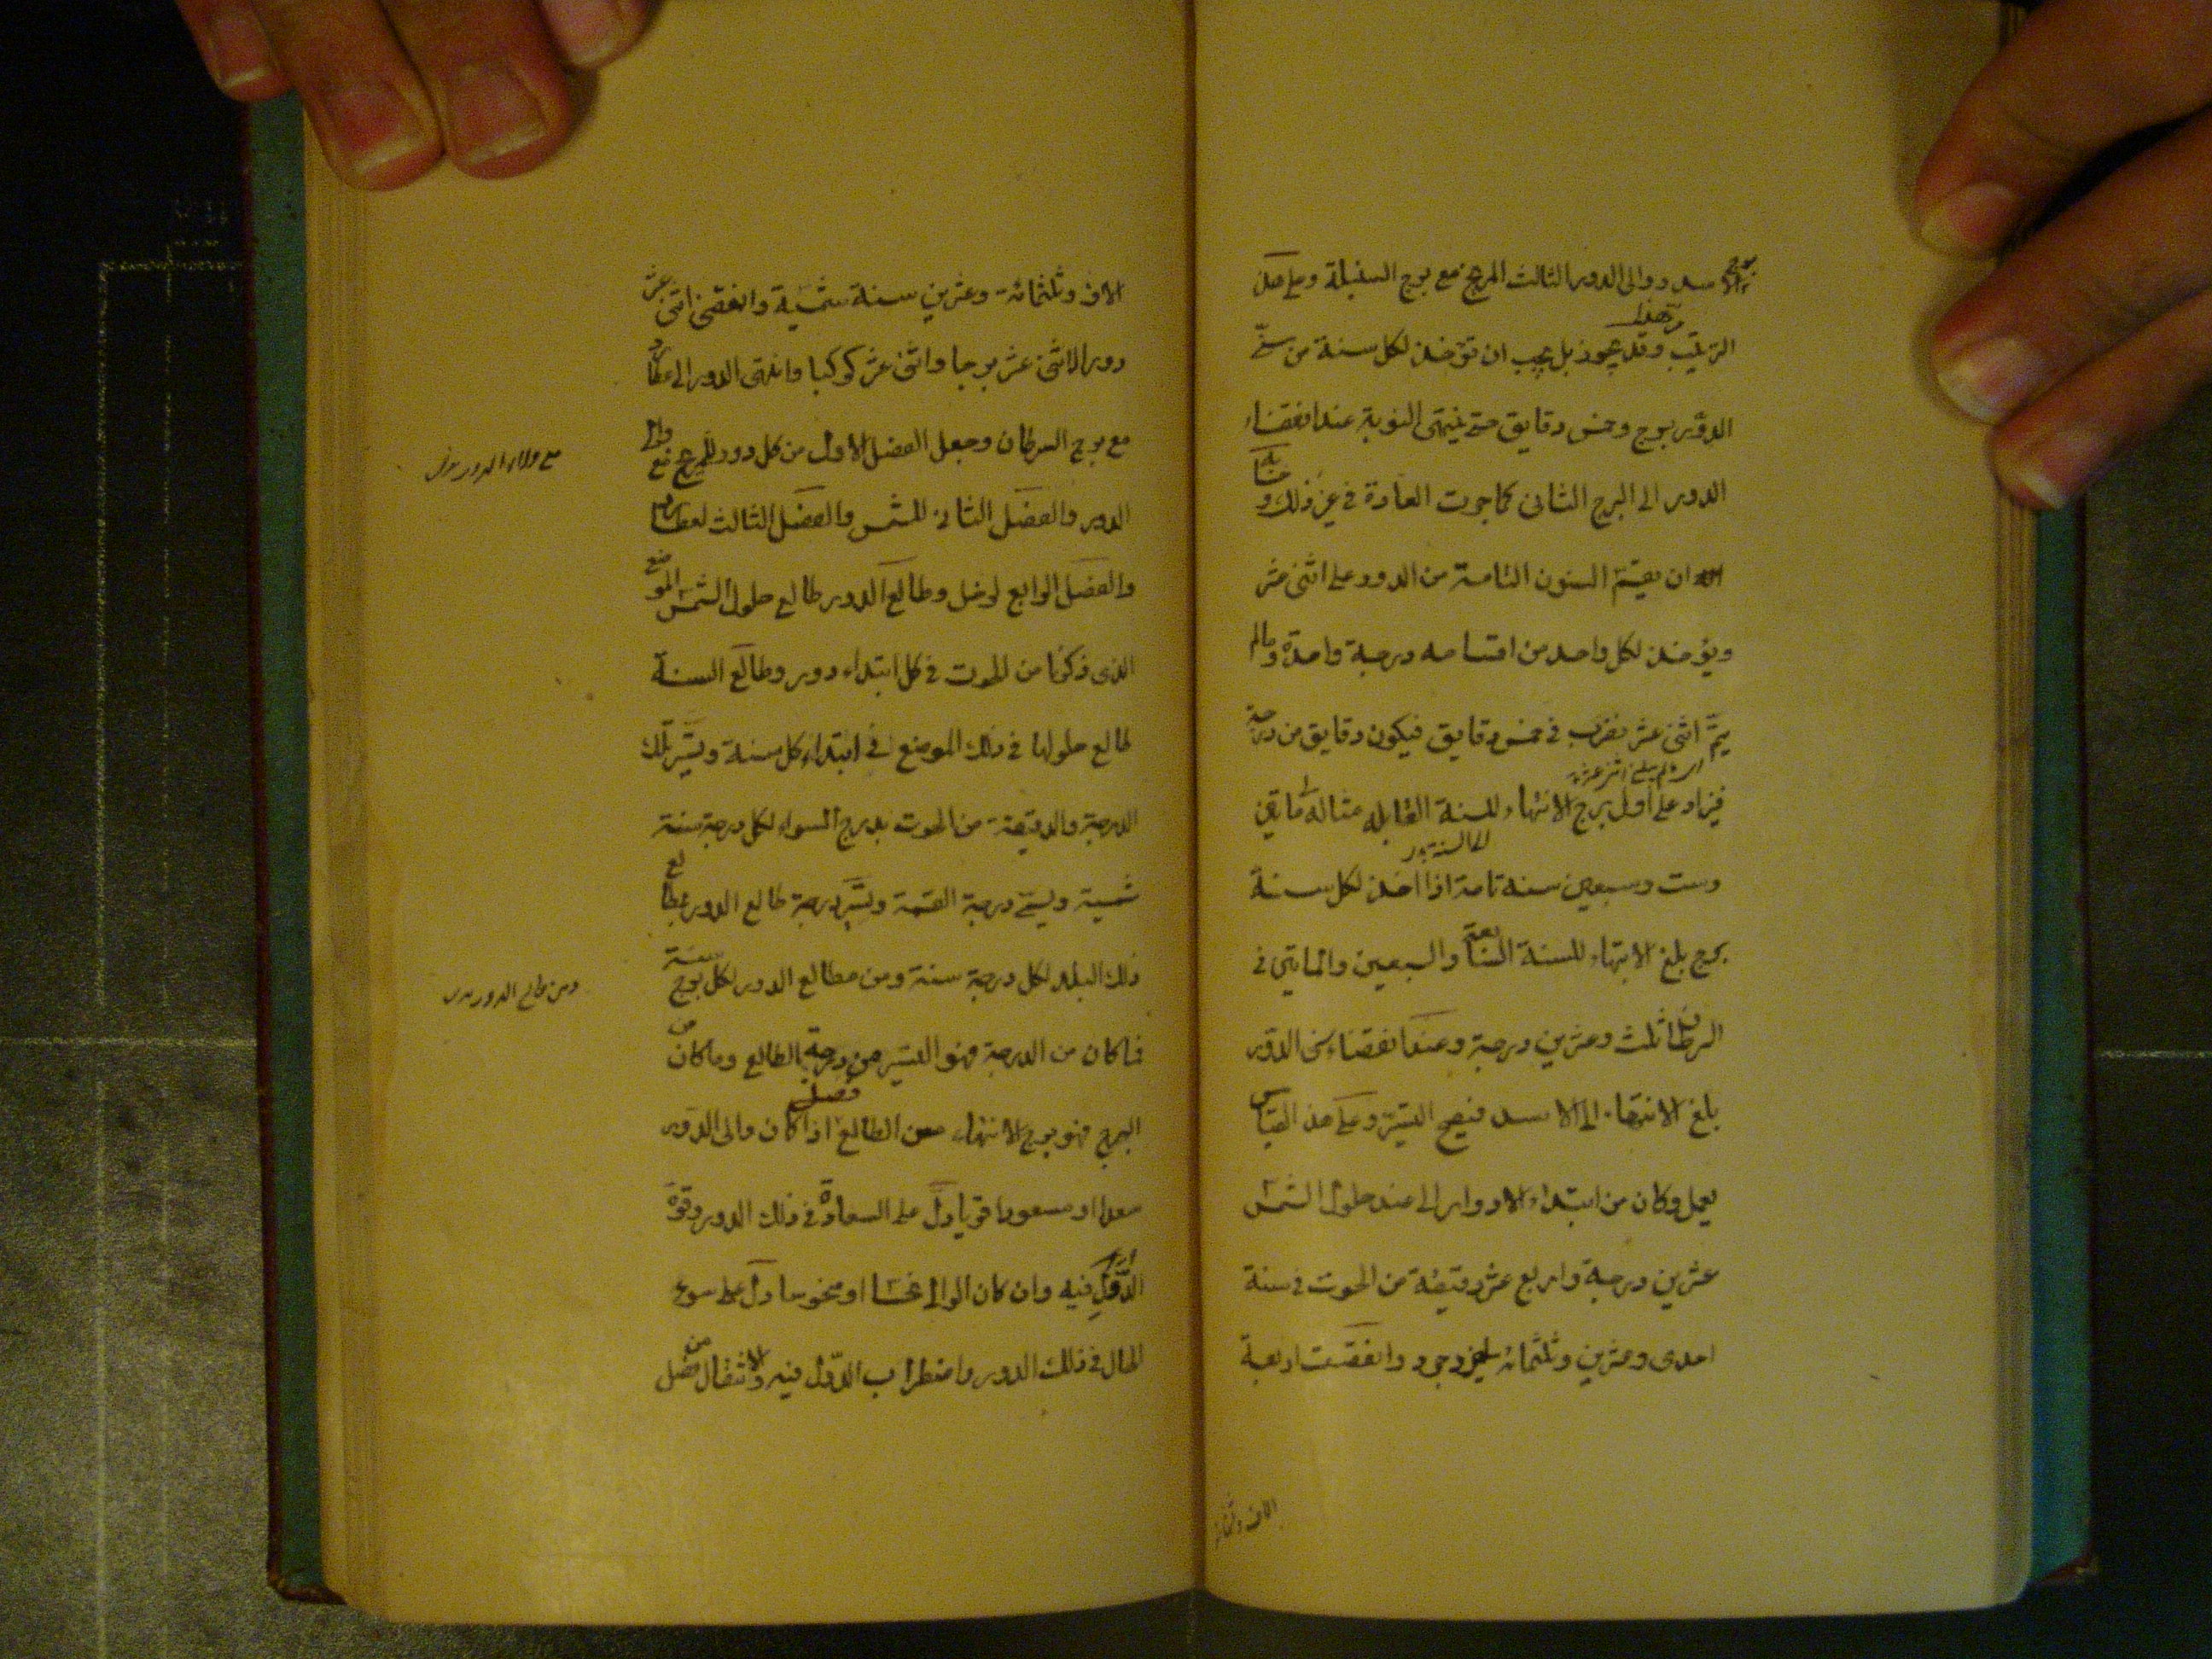 برج الاسد ووالى الدور الثالث المريخ مع برج السنبلة وعلى هذا
الترتيب وقد يجوز بل يجب ان تؤخذ لكل سنة من سنى
الدور برج وخمس دقايق حتى ينتهى النوبة عند انقضاء
الدور الى البرج الثانى كما جرت العادة فى غير ذلك و
ان يقسم السنون التامة من الدور على اثنى عشر
ويؤخذ لكل واحد من اقسامه درجة واحدة وما لم
يتم اثنى عشر يضرب فى خمس دقايق فيكون دقايق من درجة
فيزاد على اول برج الانتهاء للسنة القابله مثاله مايتين
وست وسبعين سنه تامة اذا اخذ لكل سنة
برج بلغ الانتهاء للسنة السابعة والسبعين والمايتين فى
السرطان ثلث وعشرين درجة وعند انقضاء سنى الدور
بلغ الانتهاء الى الاسد فيصح التسيير وعلى هذ القياس
يعمل وكان من ابتداء الادوار الى عند حلول الشمس
عشرين درجة واربع عشر دقيقة من الحوت فى سنة
احدى وعشرين وثلثمائة ليزدجرد وانقضت اربعة
الاف وثلثمائة
الاف وثلثمائة وعشرين سنة شمسية وانقضى اثنى عشر
دور الاثنى عشر برجا واثنى عشر كوكبا وانتهى الدور الى عطارد
مع برج السرطان وجعل الفصل الاول من كل دور للمريخ مع والى
الدور والفصل الثانى للشمس والفصل الثالث لعطارد
والفصل الرابع لزحل وطالع الدور طالع حلول الشمس الموضع
الذى ذكرنا من الحوت فى كل ابتداء دور وطالع السنة
طالع حلولها فى ذلك الموضع فى ابتداء كل سنة ويسير تلك
الدرجة والدقيقة من الحوت بدرج السواء لكل درجة سنة
شمسية ويسمى درجة القسمة ويسير درجة طالع الدور بمطالع
ذلك البلد لكل درجة سنة ومن مطالع الدور لكل برج سنة
فما كان من الدرجة فهو التسيير من درجة الطالع وما كان من
البرج فهو برج الانتهاء من الطالع فصل اذا كان والى الدور
سعدا او مسعودا قويا دل على السعادة فى ذلك الدور وقوة
الدول فيه وان كان الوالى نحسا او منحوسا دل على سوء
الحال فى ذلك الدور واضطراب الدول فيه والانتقال من فصل
ومن طالع الدور